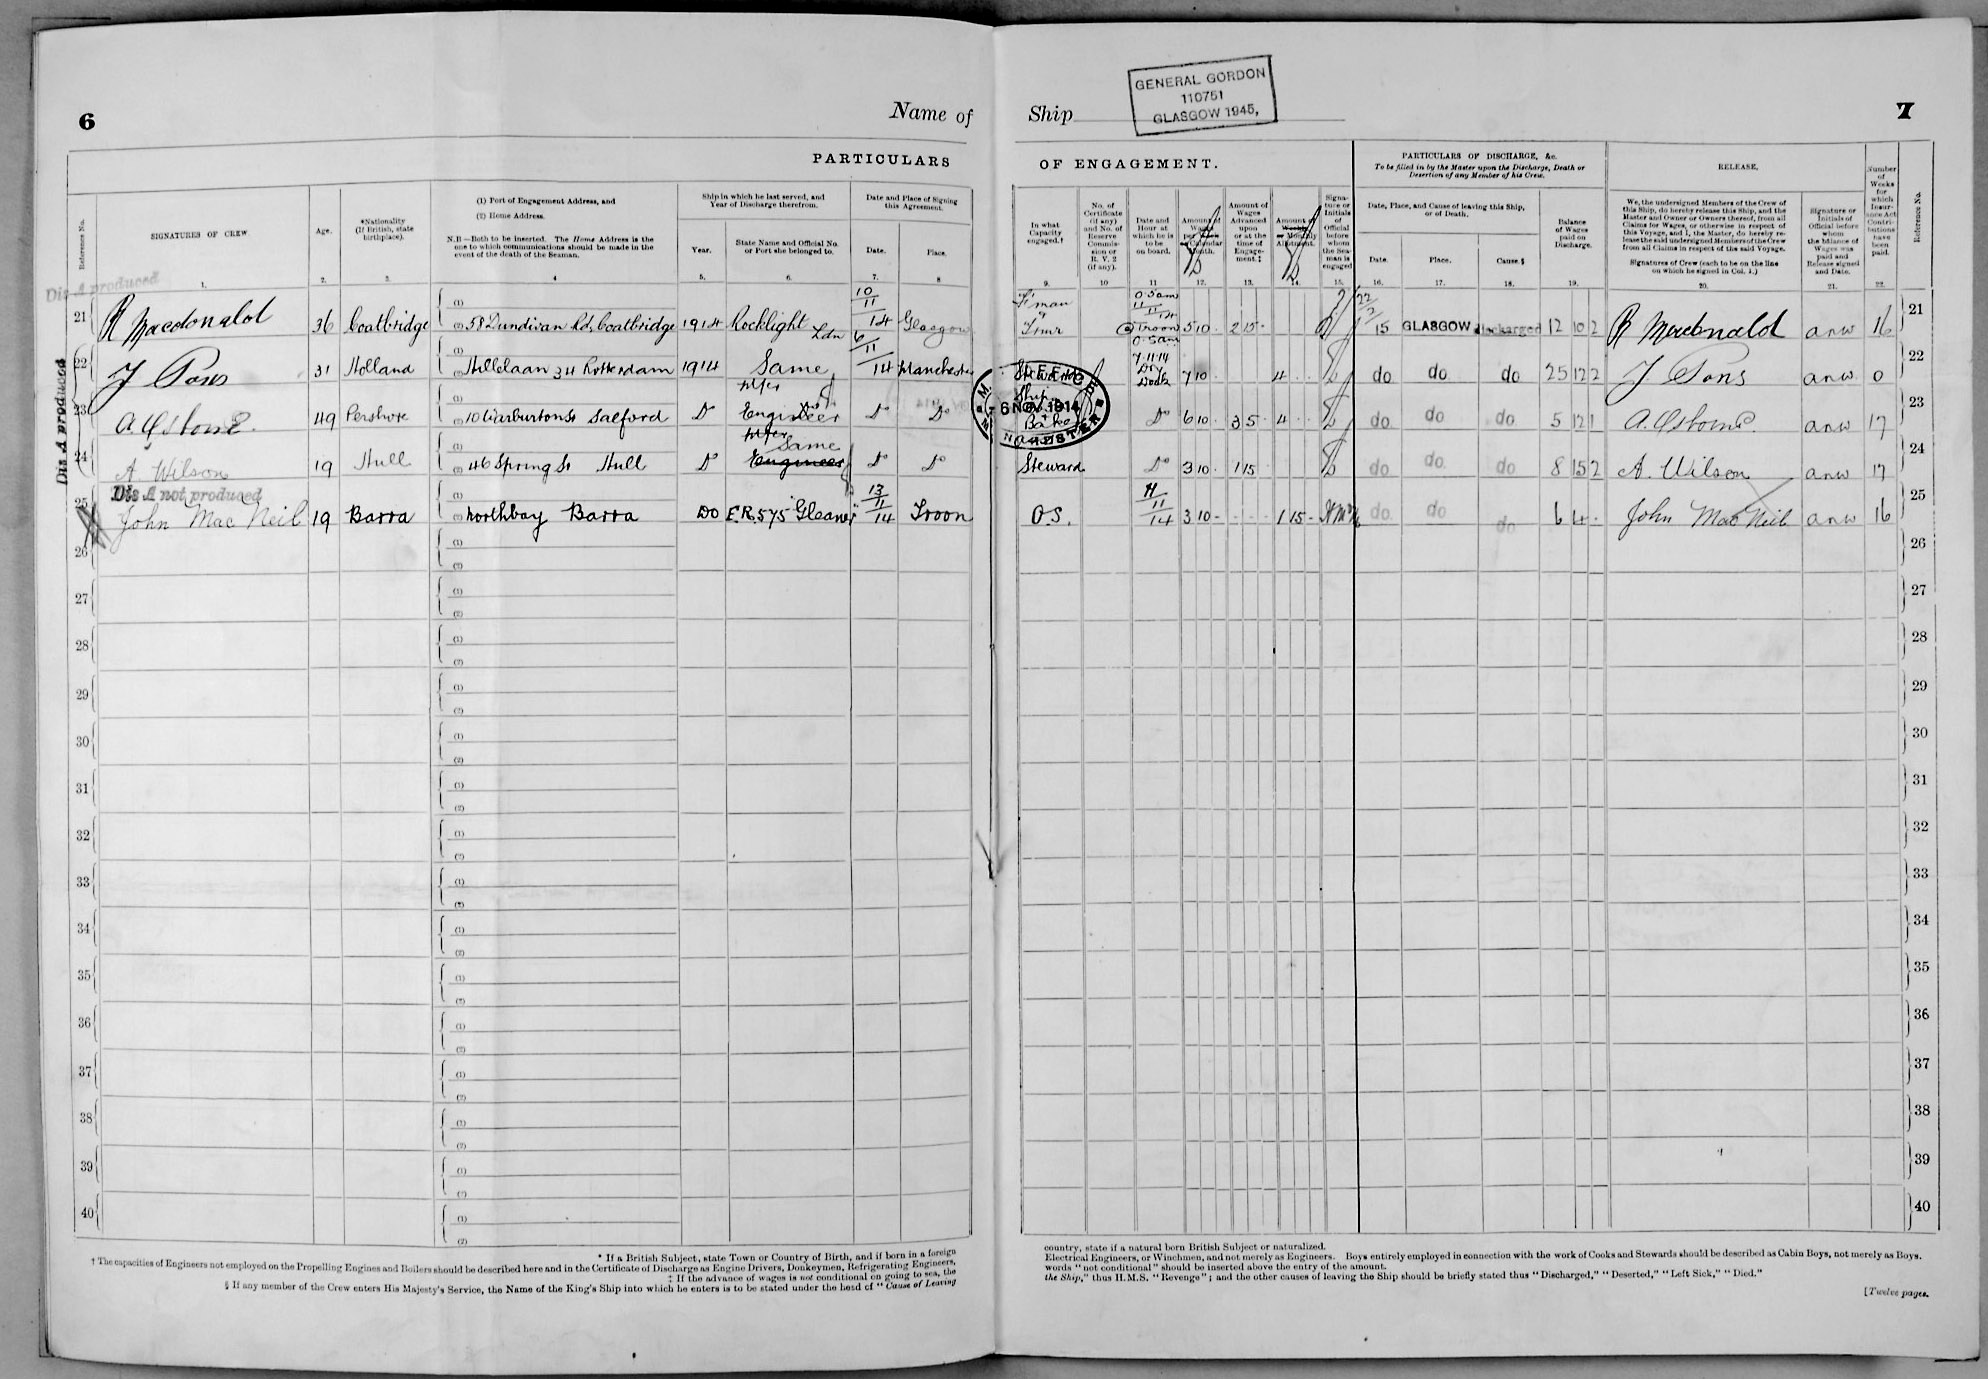 6
Name of
Ship
GENERAL GORDON
110751
GLASGOW 1945,
7
PARTICULARS
OF ENGAGEMENT.
PARTICULARS OF DISCHARGE, &c.
To be filled in by the Master upon the Discharge, Death or
Desertion of any Member of his Crew.
RELEASE.
Reference No.
SIGNATURES OF CREW.
Age.
*Nationality
(If British, state
birthplace).
(1) Port of Engagement Address, and
(2) Home Address.
N.B.—Both to be inserted. The Home Address is the
one to which communications should be made in the
event of the death of the Seaman.
Ship in which he last served, and
Year of Discharge therefrom.
Year.
State Name and Official No.
or Port she belonged to.
Date and Place of Signing
this Agreement.
Date.
Place.
In what
Capacity
engaged.†
No. of
Certificate
(if any)
and No. of
Reserve
Commis-
sion or
R. V. 2
(if any).
Date and
Hour at
which he is
to be
on board.
Amount of
Wages
per
Calendar
Month.
Amount of
Wages
Advanced
upon
or at the
time of
Engage-
ment.‡
Amount of
Weekly
or Monthly
Allotment.
Signa-
ture or
Initials
of
Official
before
whom
the Sea-
man is
engaged
Date, Place, and Cause of leaving this Ship,
or of Death.
Date.
Place.
Cause.§
Balance
of Wages
paid on
Discharge.
We, the undersigned Members of the Crew of
this Ship, do hereby release this Ship, and the
Master and Owner or Owners thereof, from all
Claims for Wages, or otherwise in respect of
this Voyage, and I, the Master, do hereby re-
lease the said undersigned Members of the Crew
from all Claims in respect of the said Voyage.
Signatures of Crew (each to be on the line
on which he signed in Col. 1.)
Signature or
Initials of
Official before
whom
the balance of
Wages was
paid and
Release signed
and Date.
Number
of
Weeks
for
which
Insur-
ance Act
Contri-
butions
have
been
paid.
Reference No.
1. 2. 3. 4 5. 6. 7. 8 9. 10 11 12. 13. 14. 15. 16. 17. 18. 19. 20. 21. 22.
Dis A produced
21 R Macdonald 36 Coatbridge (1) (2) 58 Dundivan Rd, Coatbridge 1914 Rocklight Ldn 10/11/14 Glasgow F'man & Trmr 0.5am 11/11/14 @ Troon 5 10 - 2 15 - 22/2/15 GLASGOW discharged 12 10 2 R Macdonald anw 16 21
Dis A produced
22 J Pons 31 Holland (1) (2) Hillelaan 34 Rotterdam 1914 Same 6/11/14 Manchester Steward 0.5am 7.11.14 Dry Dock 7 10 4 do do do 25 12 2 J. Pons anw 0 22
23 A. Osborne. 49 Pershore (1) (2) 10 Warburton St Salford Do Mchr Engineer Do Do Ship's + Baker Do 6 10 - 3 5 - 4 do do do 5 12 1 A. Osborne anw 17 23
M.M. OFFICE
- 6 NOV 1914
MANCHESTER
24 A Wilson 19 Hull (1) (2) 46 Spring St Hull Do Mchr Engineer Same Do Do Steward Do 3 10 - 1 15 do do do 8 15 2 A. Wilson anw 17 24
Dis A not produced
25 John Mac Neil 19 Barra (1) (2) Northbay Barra Do E.R. 575 Gleaner 13/11/14 Troon O.S. 11/11/14 3 10 - 1 15 - do do do 6 4 - John Mac Neil anw 16 25
26 (1) (2) 26
27 (1) (2) 27
28 (1) (2) 28
29 (1) (2) 29
30 (1) (2) 30
31 (1) (2) 31
32 (1) (2) 32
33 (1) (2) 33
34 (1) (2) 34
35 (1) (2) 35
36 (1) (2) 36
37 (1) (2) 37
38 (1) (2) 38
39 (1) (2) 39
40 (1) (2) 40
* If a British Subject, state Town or Country of Birth, and if born in a foreign
country, state if a natural born British Subject or naturalized.
† The capacities of Engineers not employed on the Propelling Engines and Boilers should be described here and in the Certificate of Discharge as Engine Drivers, Donkeymen, Refrigerating Engineers,
Electrical Engineers, or Winchmen, and not merely as Engineers. Boys entirely employed in connection with the work of Cooks and Stewards should be described as Cabin Boys, not merely as Boys.
‡ If the advance of wages is not conditional on going to sea, the
words "not conditional" should be inserted above the entry of the amount.
§ If any member of the Crew enters His Majesty's Service, the Name of the King's Ship into which he enters is to be stated under the head of "Cause of Leaving
the Ship," thus H.M.S. "Revenge"; and the other causes of leaving the Ship should be briefly stated thus "Discharged," "Deserted," "Left Sick," "Died."
[Twelve pages.